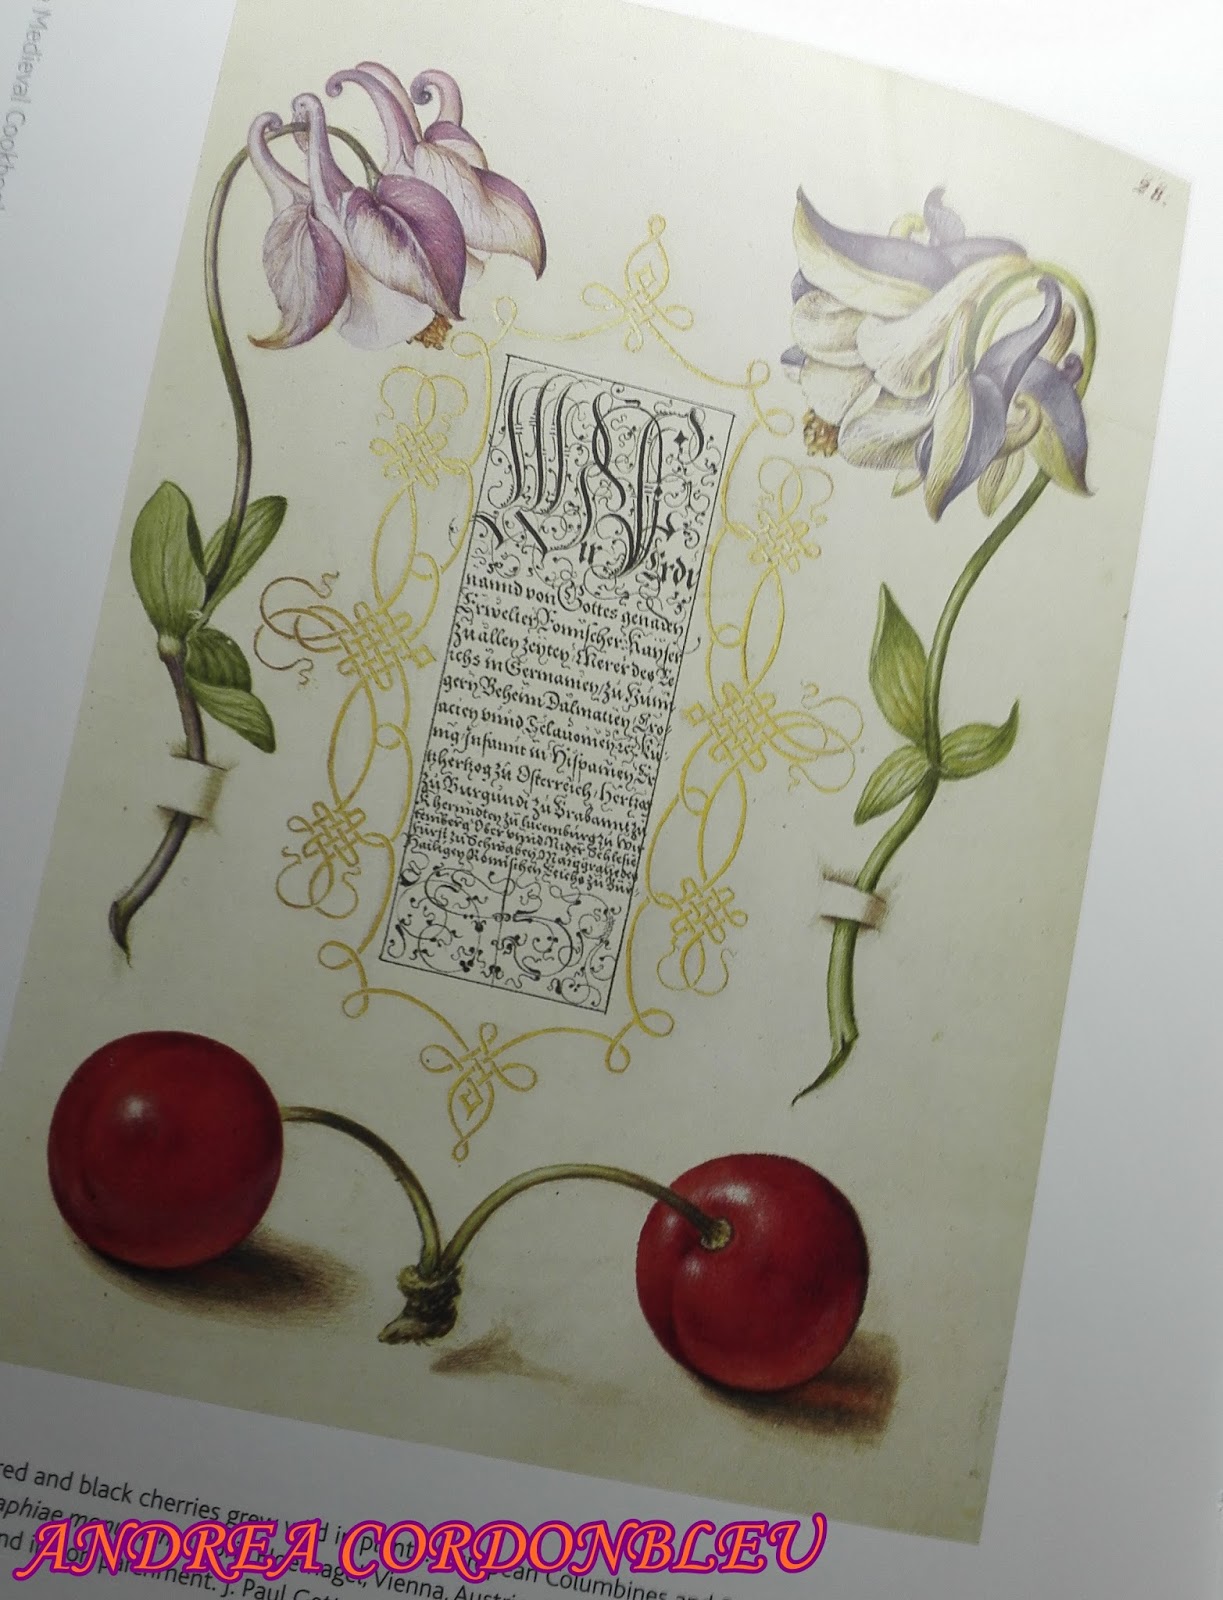 Medieval Cookbook
28.
Wir Ferdi
nannd von Gottes genaden
Erwelter Romischer Kayser
zu allen zeyten Merer des Re
ichs in Germanien, zu Hun
gern Beheim Dalmatien, Cro-
acien vnnd Sclauonien, etc. Ku-
nig, Infannt in Hispanien, Er
tzhertzog zu Osterreich, Hertzog
zu Burgundi zu Brabannt zu
zu Lucemburg zu Wir
temberg Ober vnnd Nider Schlesie
Furst zu Schwaben, Marggraue des
Hailigen Romischen Reichs zu Bur-
red and black cherries grew wild in
aphiae
Columbines and
parchment. J. Paul
Vienna, Austria
ANDREA CORDONBLEU